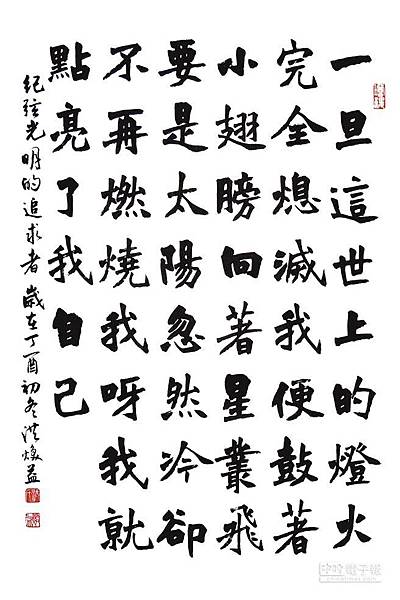 一旦這世上的燈火
完全熄滅我便鼓著
小翅膀向著星叢飛
要是太陽忽然冷卻
不再燃燒我呀我就
點亮了我自己
紀弦光明的追求者 歲在丁酉初冬洪煥益
中時電子報